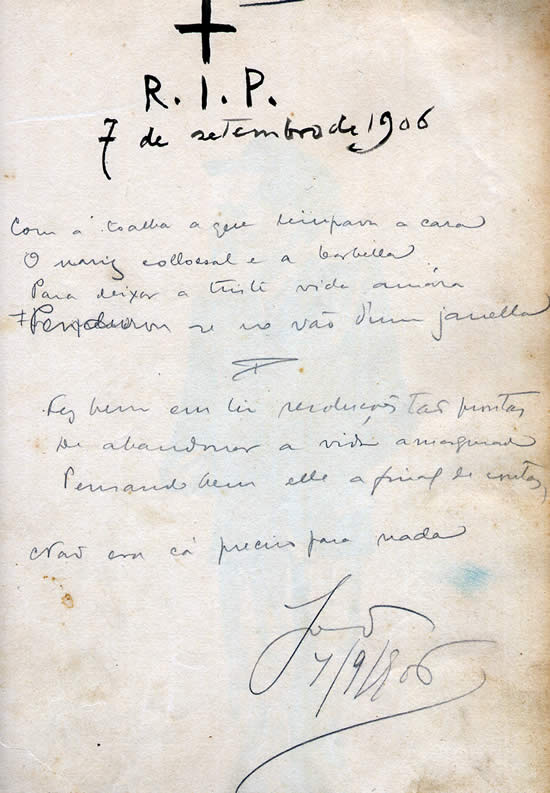 R.I.P.
7 de setembro de 1906
Com a toalha a que limpava a cara
O nariz collossal e a barbella
Para deixar a triste vida amára
Pendurou se no vão d'um janella
Fez bem em ter resoluções tão promptas
De abandonar a vida amargurada
Pensando bem elle a final de contas,
Não era cá preciso para nada
7/9/906